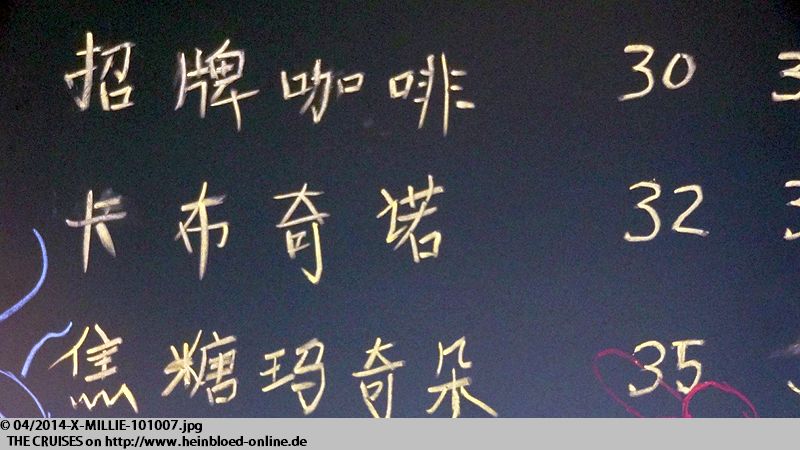 招牌咖啡 30 3
卡布奇诺 32 3
焦糖玛奇朵 35
© 04/2014-X-MILLIE-101007.jpg
THE CRUISES on http://www.heinbloed-online.de